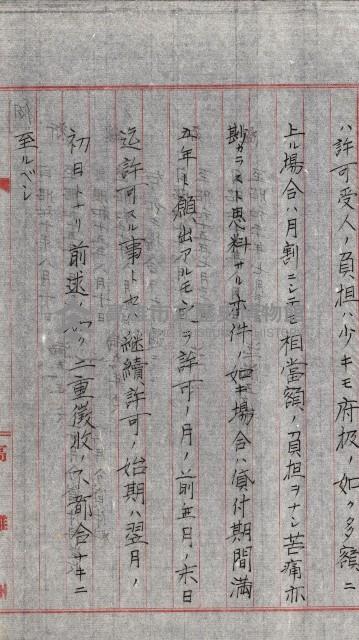 ハ許可受人ノ負担ハ少キモ府扱ノ如ク多額ニ
上ル場合ハ月割ニシテモ相當額ノ負担ヲナシ苦痛亦
尠カラスト思料サル本件ノ如キ場合ハ貸付期間満
五年ト願出アルモ之ヲ許可ノ月ノ前五月ノ末日
迄許可スル事トセハ継續許可ノ始期ハ翌月ノ
初日トナリ前述ノ如ク二重徴收ノ不都合ナキニ
至ルベシ
高雄州